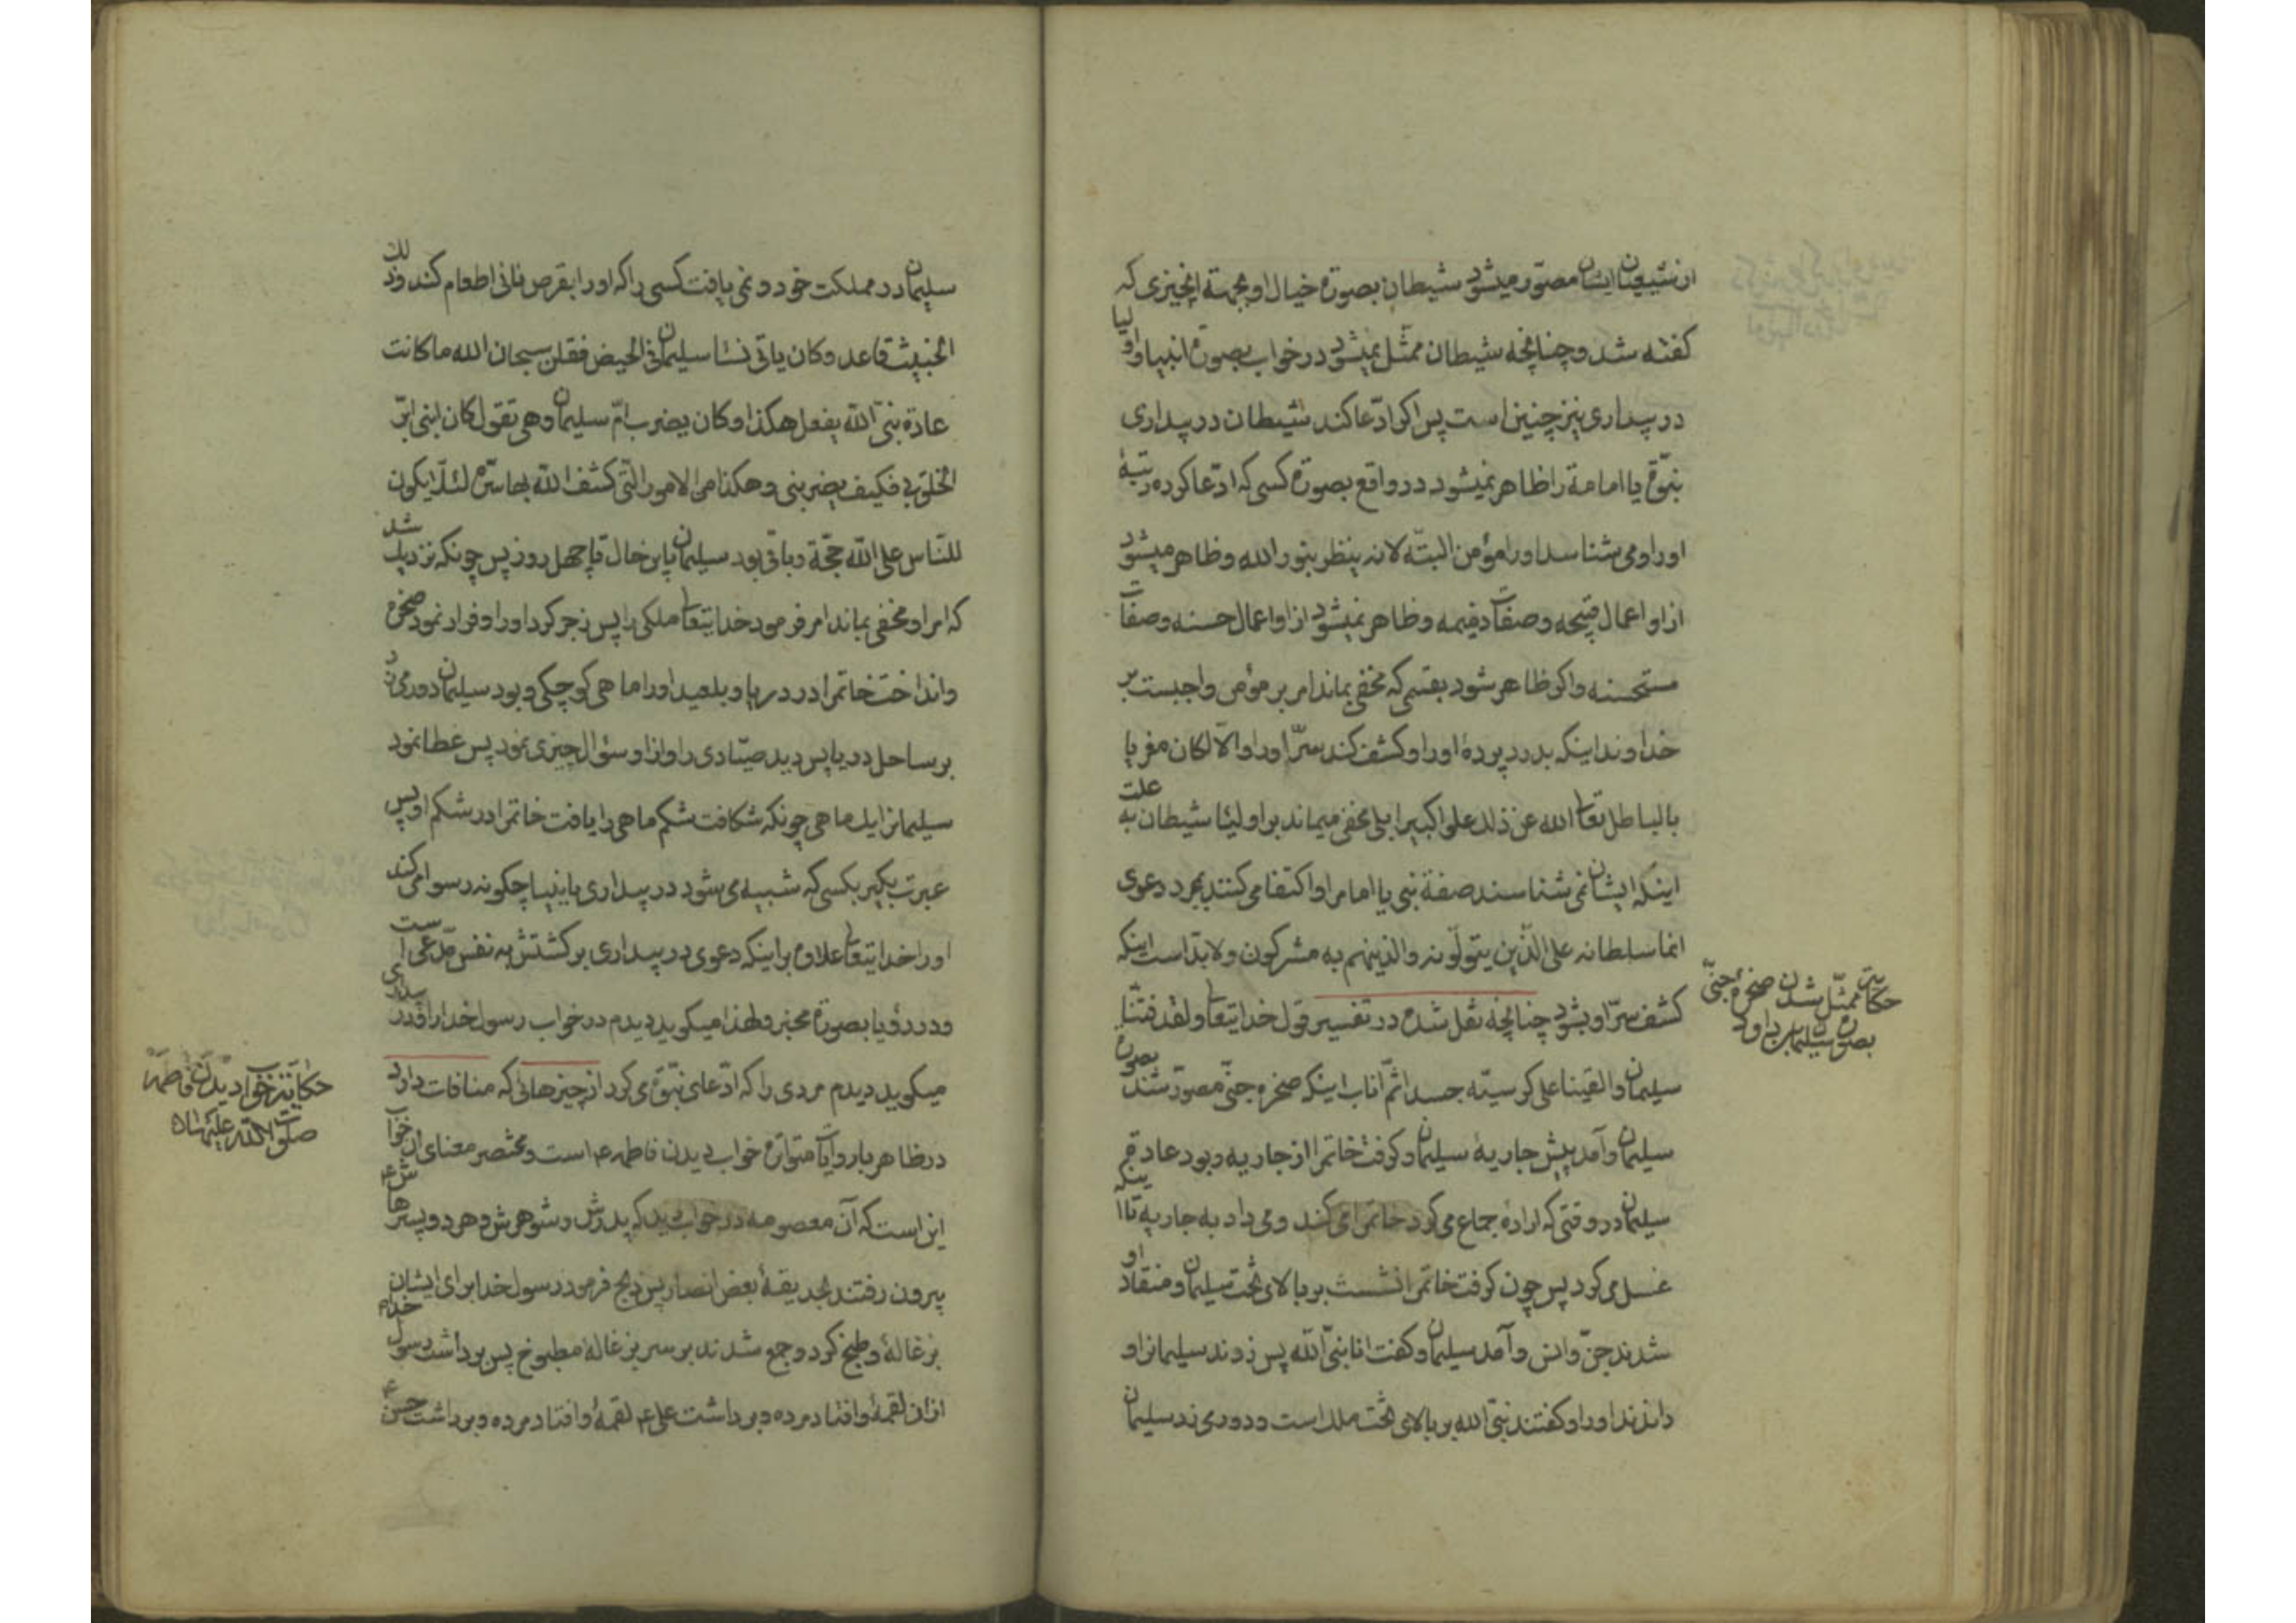 از شیعیان ایشان مصوّر میشود شیطان بصورة خیال او بجهة انچیزی که
کفته شد و چنانچه شیطان ممثّل نمیشود در خواب بصورة انبیا و اولیا
در بیداری نیز چنین است پس اکر ادّعا کند شیطان در بیداری
نبوّة یا امامة را ظاهر نمیشود در واقع بصورة کسی که ادّعا کرده رتبهٔ
او را و می شناسد او را مؤمن البتّه لانه ینظر بنور الله و ظاهر میشود
از او اعمال قبیحه و صفات ذمیمه و ظاهر نمیشود از او اعمال حسنه و صفات
مستحسنه و اکر ظاهر شود بقسمی که مخفی بماند امر بر مؤمن واجبست بر
خداوند اینکه بدرد پردهٔ او را و کشف کند سرّ او را و الّا لکان مغریا
بالباطل تعالی الله عن ذلک علوا کبیرا بلی مخفی میماند بر اولیا شیطان به علت
اینکه ایشان نمی شناسند صفة نبی یا امام را و اکتفا می کنند بمجرد دعوی
انما سلطانه علی الّذین یتولّونه والذینهم به مشرکون و لابدّ است اینکه
کشف سرّ او بشود چنانچه نقل شده در تفسیر قول خدایتعالی و لقد فتنّا
سلیمان و القینا علی کرسیّه جسدا ثمّ اناب اینکه صخرهٔ جنّی مصوّر شد بصورة
سلیمان و آمد پیش جاریهٔ سلیمان و کرفت خاتم را از جاریه و بود عادة
سلیمان در وقتی که ارادهٔ جماع می کرد خاتم را می کند و می داد به جاریه تا اینکه
غسل می کرد پس چون کرفت خاتم را نشست بر بالای تخت سلیمان و منقاد او
شدند جنّ و انس و آمد سلیمان و کفت انا نبیّ الله پس زدند سلیمانرا و
راندند او را و کفتند نبیّ الله بر بالای تخت ملک است و دوری زد سلیمان
حکایت ممثّل شدن صخرهٔ جنّی
بصورة سلیمان بن داود
سلیمان در مملکت خود و نمی یافت کسی را که او را بقرص نانی اطعام کند و ذلک
الخبیث قاعد و کان یاتی نسا سلیمان فی الحیض فقلن سبحان الله ما کانت
عادة نبیّ الله یفعل هکذا و کان یضرب امّ سلیمان وهی تقول کان ابنی ابرّ
الخلق بی فکیف یضربنی و هکذا من الامور الّتی کشف الله بها سرّه لئلّا یکون
للنّاس علی الله حجّة و باقی بود سلیمان باین حال تا چهل روز پس چونکه نزدیک شد
که امر او مخفی بماند امر فرمود خدایتعالی ملکی را پس زجر کرد او را و فرار نمود صخره
و انداخت خاتم را در دریا و بلعید او را ماهی کوچکی و بود سلیمان دور می زد
بر ساحل دریا پس دید صیّادی را و از او سؤال چیزی نمود پس عطا نمود
سلیمانرا یک ماهی چونکه شکافت شکم ماهی را یافت خاتم را در شکم او پس
عبرت بکیر بکسی که شبیه می شود در بیداری بانبیا چکونه رسوا می کند
او را خدایتعالی علاوه بر اینکه دعوی در بیداری برکشتش به نفس مدّعی است
و در رؤیا بصورة مخبر و لهذا میکوید دیدم در خواب رسول خدا را و در بیداری
میکوید دیدم مردی را که ادّعای نبوّة می کرد از چیزهائی که منافات دارد
در ظاهر با روایات متواترة خواب دیدن فاطمه ع است و مختصر معنای ان خواب
این است که آن معصومه در خواب دید که پدرش و شوهرش و هر دو پسرهاش ع
بیرون رفتند بحدیقهٔ بعض انصار پس ذبح فرمود رسول خدا برای ایشان
بزغالهٔ و طبخ کرد و جمع شدند بر سر بزغالهٔ مطبوخ پس برداشت رسول خدا
از ان لقمهٔ و افتاد مرده و برداشت علی ع لقمهٔ و افتاد مرده و برداشت حسن ع
حکایت خواب دیدن فاطمه زهرا
صلوات الله علیها